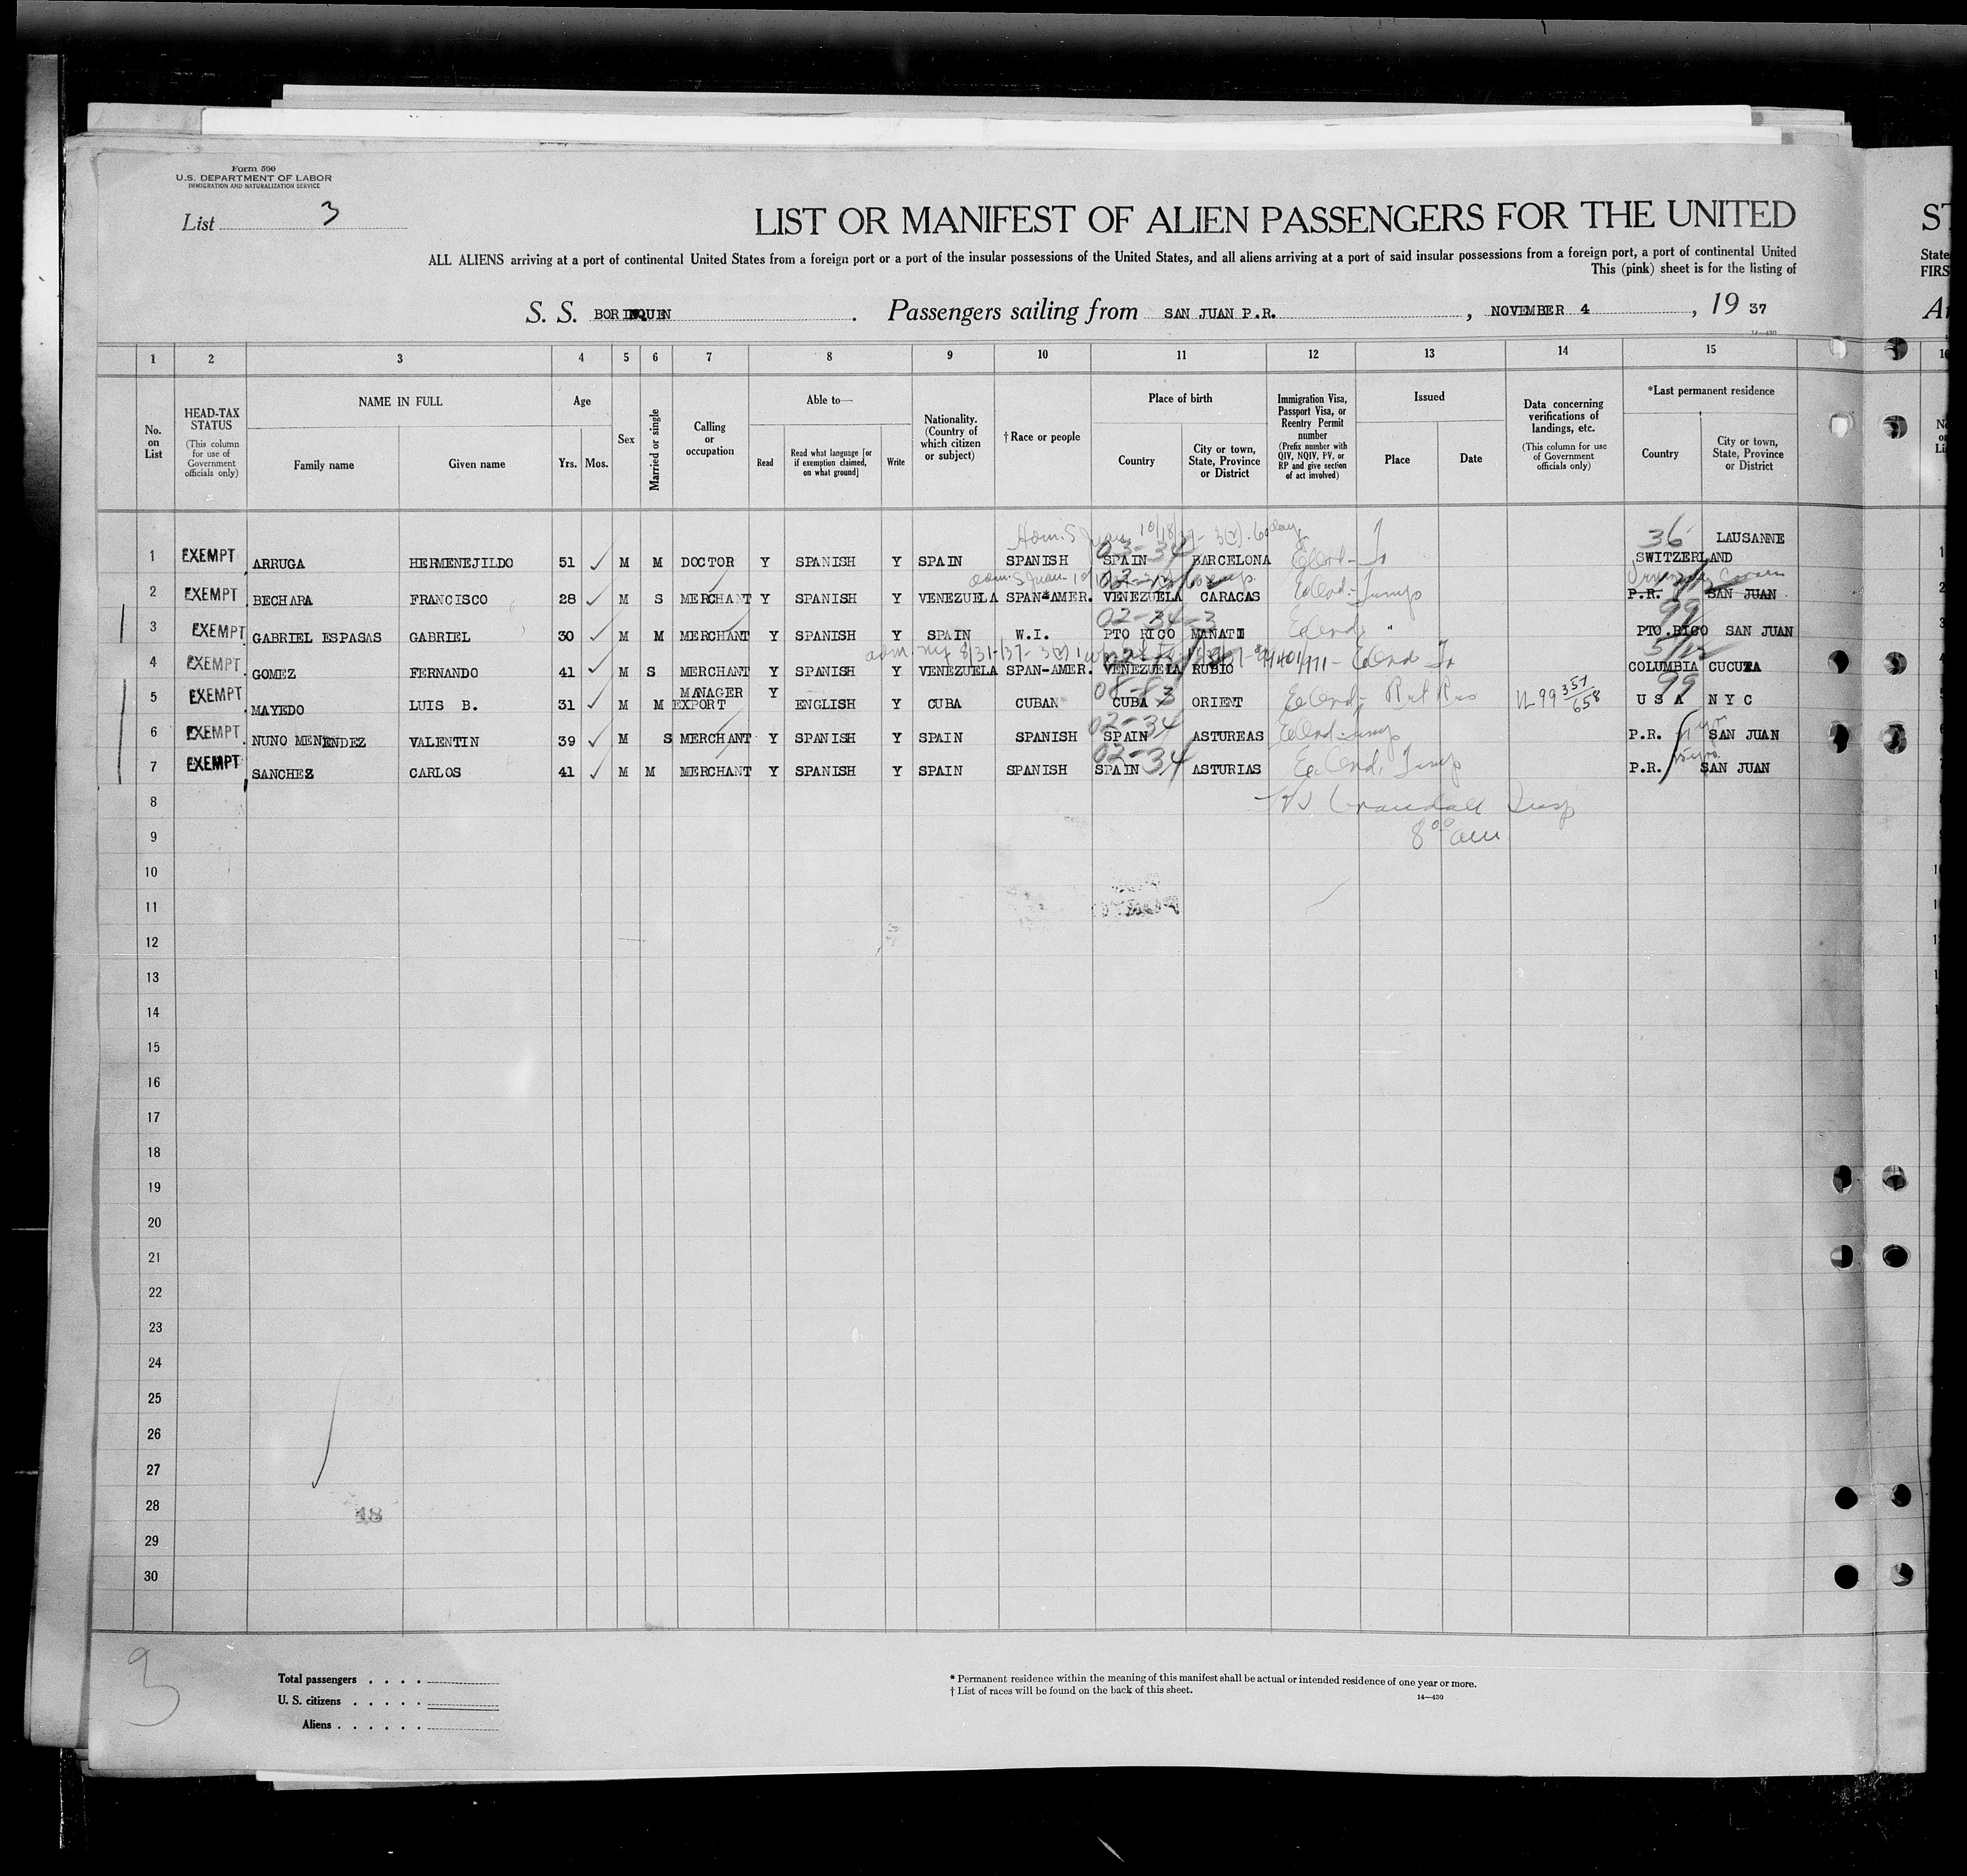 Form 500
U.S. DEPARTMENT OF LABOR
IMMIGRATION AND NATURALIZATION SERVICE
List 3
LIST OR MANIFEST OF ALIEN PASSENGERS FOR THE UNITED
ST
ALL ALIENS arriving at a port of continental United States from a foreign port or a port of the insular possessions of the United States, and all aliens arriving at a port of said insular possessions from a foreign port, a port of continental United
State
This (pink) sheet is for the listing of
FIRS
S. S. BORINQUEN . Passengers sailing from SAN JUAN P.R. , NOVEMBER 4 , 19 37
14—430
1 2 3 4 5 6 7 8 9 10 11 12 13 14 15
No. on List
HEAD-TAX STATUS
(This column for use of Government officials only)
NAME IN FULL
Family name
Given name
Age
Yrs. Mos.
Sex
Married or single
Calling or occupation
Able to—
Read
Read what language [or if exemption claimed, on what ground]
Write
Nationality. (Country of which citizen or subject)
† Race or people
Place of birth
Country
City or town, State, Province or District
Immigration Visa, Passport Visa, or Reentry Permit number
(Prefix number with QIV, NQIV, PV, or RP and give section of act involved)
Issued
Place
Date
Data concerning verifications of landings, etc.
(This column for use of Government officials only)
*Last permanent residence
Country
City or town, State, Province or District
Adm. S Juan 10/18/37- 3(2). 60 days
03-34
36 LAUSANNE
1 EXEMPT ARRUGA HERMENEJILDO 51 ✓ M M DOCTOR Y SPANISH Y SPAIN SPANISH SPAIN BARCELONA SWITZERLAND
2 EXEMPT BECHARA FRANCISCO 28 ✓ M S MERCHANT Y SPANISH Y VENEZUELA SPAN*AMER. VENEZUELA CARACAS P.R. SAN JUAN
02-34-3
99
3 EXEMPT GABRIEL ESPASAS GABRIEL 30 ✓ M M MERCHANT Y SPANISH Y SPAIN W.I. PTO RICO MANATI " PTO.RICO SAN JUAN
adm. NY 8/31/37- 3(2)
4 EXEMPT GOMEZ FERNANDO 41 ✓ M S MERCHANT Y SPANISH Y VENEZUELA SPAN-AMER. VENEZUELA RUBIO COLUMBIA CUCUTA
08-83
99
5 EXEMPT MAYEDO LUIS B. 31 ✓ M M MANAGER EXPORT Y ENGLISH Y CUBA CUBAN CUBA ORIENT 99 357/658 U S A N Y C
02-34
6 EXEMPT NUNO MENENDEZ VALENTIN 39 ✓ M S MERCHANT Y SPANISH Y SPAIN SPANISH SPAIN ASTUREAS P.R. SAN JUAN
02-34
7 EXEMPT SANCHEZ CARLOS 41 ✓ M M MERCHANT Y SPANISH Y SPAIN SPANISH SPAIN ASTURIAS P.R. SAN JUAN
8 Crandall Insp
9 8 00 am
10
11
12
13
14
15
16
17
18
19
20
21
22
23
24
25
26
27
28 18
29
30
3
Total passengers . . . .
U. S. citizens . . . . .
Aliens . . . . . .
* Permanent residence within the meaning of this manifest shall be actual or intended residence of one year or more.
† List of races will be found on the back of this sheet.
14—430